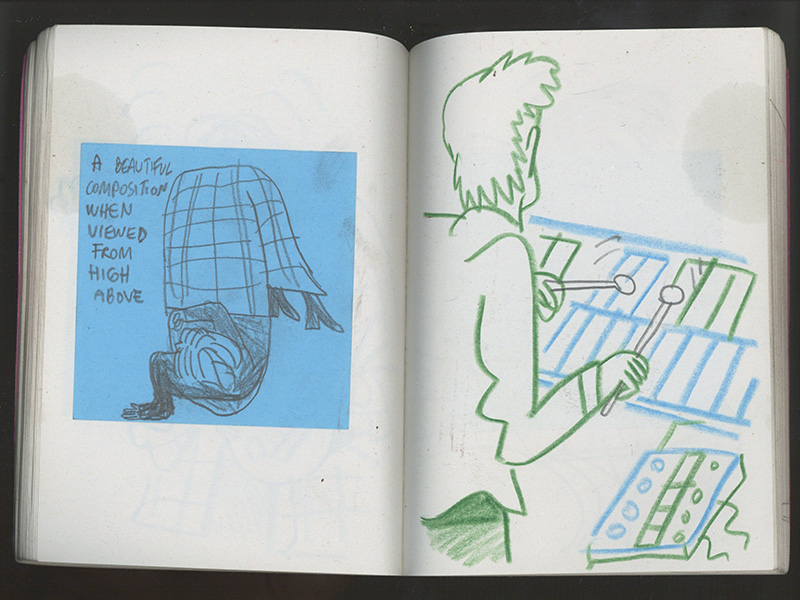 A BEAUTIFUL
COMPOSITION
WHEN
VIEWED
FROM
HIGH
ABOVE